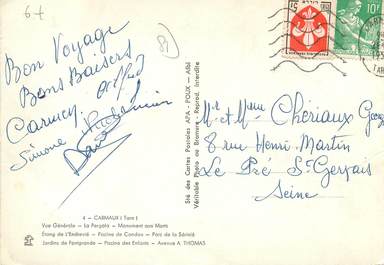 64
81
Bon Voyage
Bons Baisers
Carnucy
Simone
10F
Mr et Mme Chériaux Georges
8 rue Henri Martin
Le Pré St Gervais
Seine
Sté des Cartes Postales APA - POUX - Albi
Véritable Photo au Bromure - Reprod. Interdite
4 - CARMAUX (Tarn)
Vue Générale - La Pergola - Monument aux Morts
Étang de l'Endrevié - Piscine de Candou - Parc de la Sérinié
Jardins de Fontgrande - Piscine des Enfants - Avenue A. THOMAS